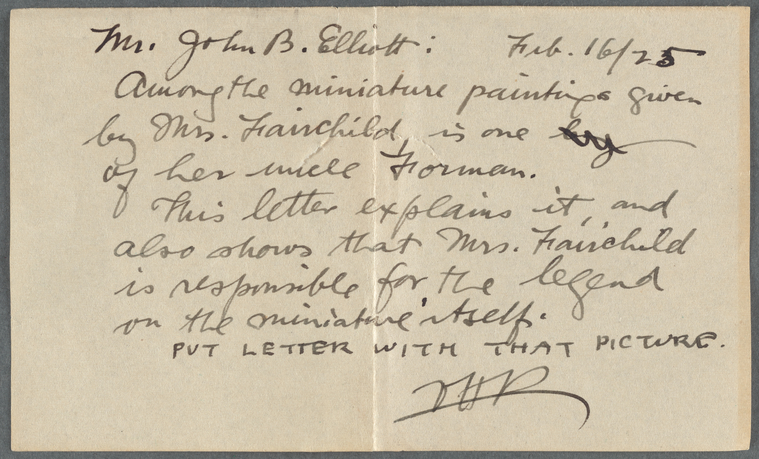 Mr. John B. Elliott: Feb. 16/25
Among the miniature paintings given
by Mrs. Fairchild, is one by
of her uncle Forman.
This letter explains it, and
also shows that Mrs. Fairchild
is responsible for the legend
on the miniature itself.
PUT LETTER WITH THAT PICTURE.